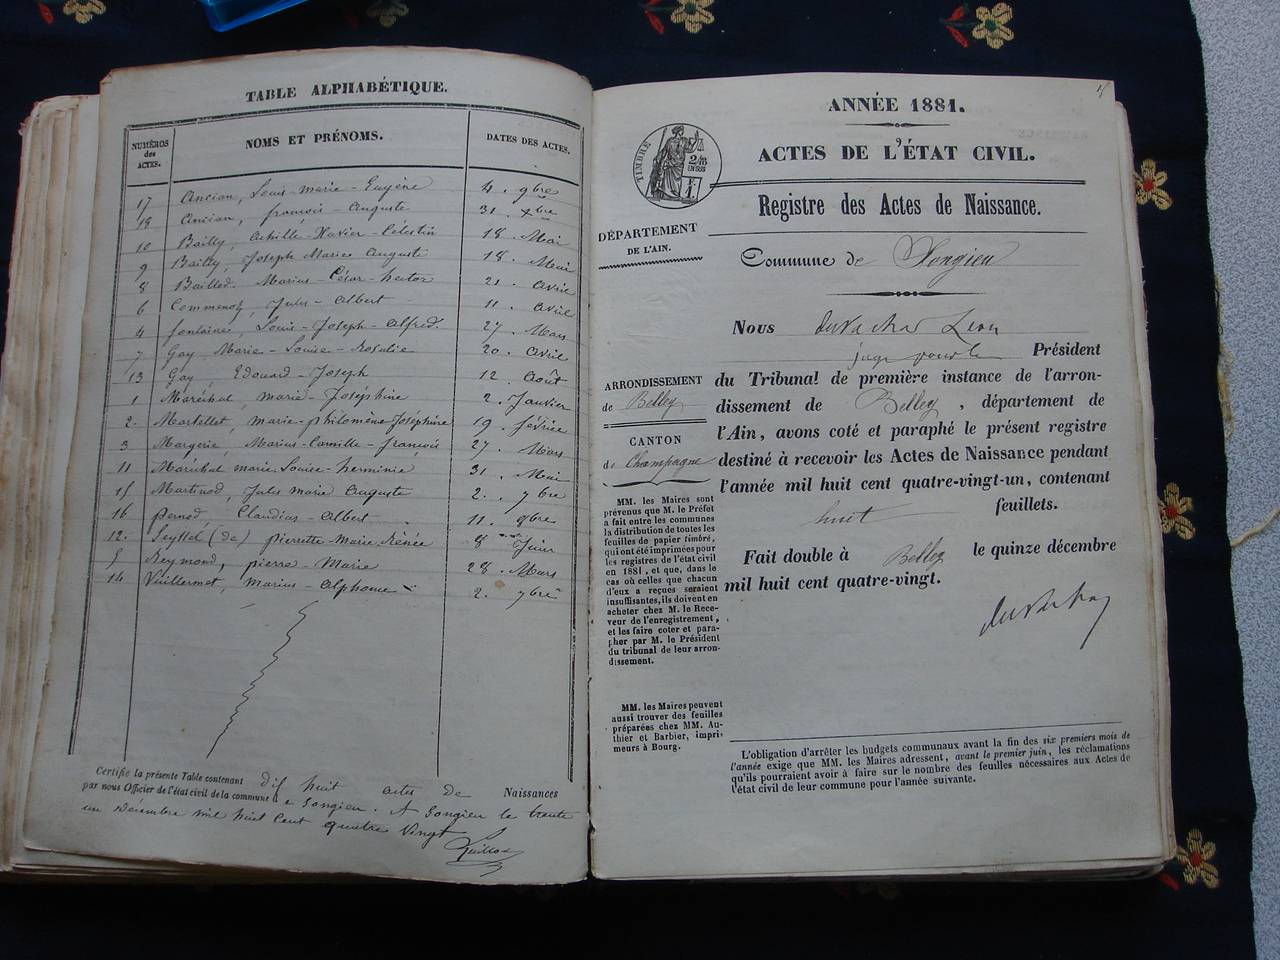 TABLE ALPHABÉTIQUE.
NUMÉROS des ACTES. NOMS ET PRÉNOMS. DATES DES ACTES.
17 Ancian, Louis-Marie-Eugène 4. 9bre
18 Ancian, françois-Auguste 31. Xbre
10 Bailly, Achille-Xavier-Célestin 18. Mai
9 Bailly, Joseph Marie Auguste 18. Mai
8 Baillod, Marius-César-hector 21. avril
6 Jules-Albert 11. avril
4 fontaine, Louis-Joseph-Alfred. 27. Mars
7 Gay Marie-Louise-Rosalie 20. avril
13 Gay, Edouard-Joseph 12. Août
1 Maréchal, marie-Joséphine 2. Janvier
2. Martellet, marie-philomène-Joséphine 19. février
3 Margerie, Marius-Camille-françois 27. Mars
11 Maréchal marie Louise-herminie 31. Mai
15 Martinod, Jules marie Auguste 2. 7bre
16 pernod, Claudius-Albert 11. 9bre
12. Seyssel (de) pierrette-Marie-Rénée 8 Juin
5 Reymond, pierre-Marie 28. Mars
14 Vuillermet, Marius-Alphonse 2. 7bre
Certifié la présente Table contenant dix huit actes de Naissances
par nous Officier de l'état civil de la commune de Songieu. A Songieu le trente
un décembre mil huit cent quatre vingt
ANNÉE 1881.
ACTES DE L'ÉTAT CIVIL.
TIMBRE
2/10
EN SUS
Registre des Actes de Naissance.
DÉPARTEMENT
DE L'AIN.
Commune de Songieu
Nous
juge pour le Président
du Tribunal de première instance de l'arron-
dissement de Belley, département de
l'Ain, avons coté et paraphé le présent registre
destiné à recevoir les Actes de Naissance pendant
l'année mil huit cent quatre-vingt-un, contenant
huit feuillets.
Fait double à Belley le quinze décembre
mil huit cent quatre-vingt.
ARRONDISSEMENT
de Belley
CANTON
de Champagne
MM. les Maires sont
prévenus que M. le Préfet
a fait entre les communes
la distribution de toutes les
feuilles de papier timbré,
qui ont été imprimées pour
les registres de l'état civil
en 1881, et que, dans le
cas où celles que chacun
d'eux a reçues seraient
insuffisantes, ils doivent en
acheter chez M. le Rece-
veur de l'enregistrement,
et les faire coter et para-
pher par M. le Président
du tribunal de leur arron-
dissement.
MM. les Maires peuvent
aussi trouver des feuilles
préparées chez MM. Au-
thier et Barbier, impri-
meurs à Bourg.
L'obligation d'arrêter les budgets communaux avant la fin des six premiers mois de
l'année exige que MM. les Maires adressent, avant le premier juin, les réclamations
qu'ils pourraient avoir à faire sur le nombre des feuilles nécessaires aux Actes de
l'état civil de leur commune pour l'année suivante.